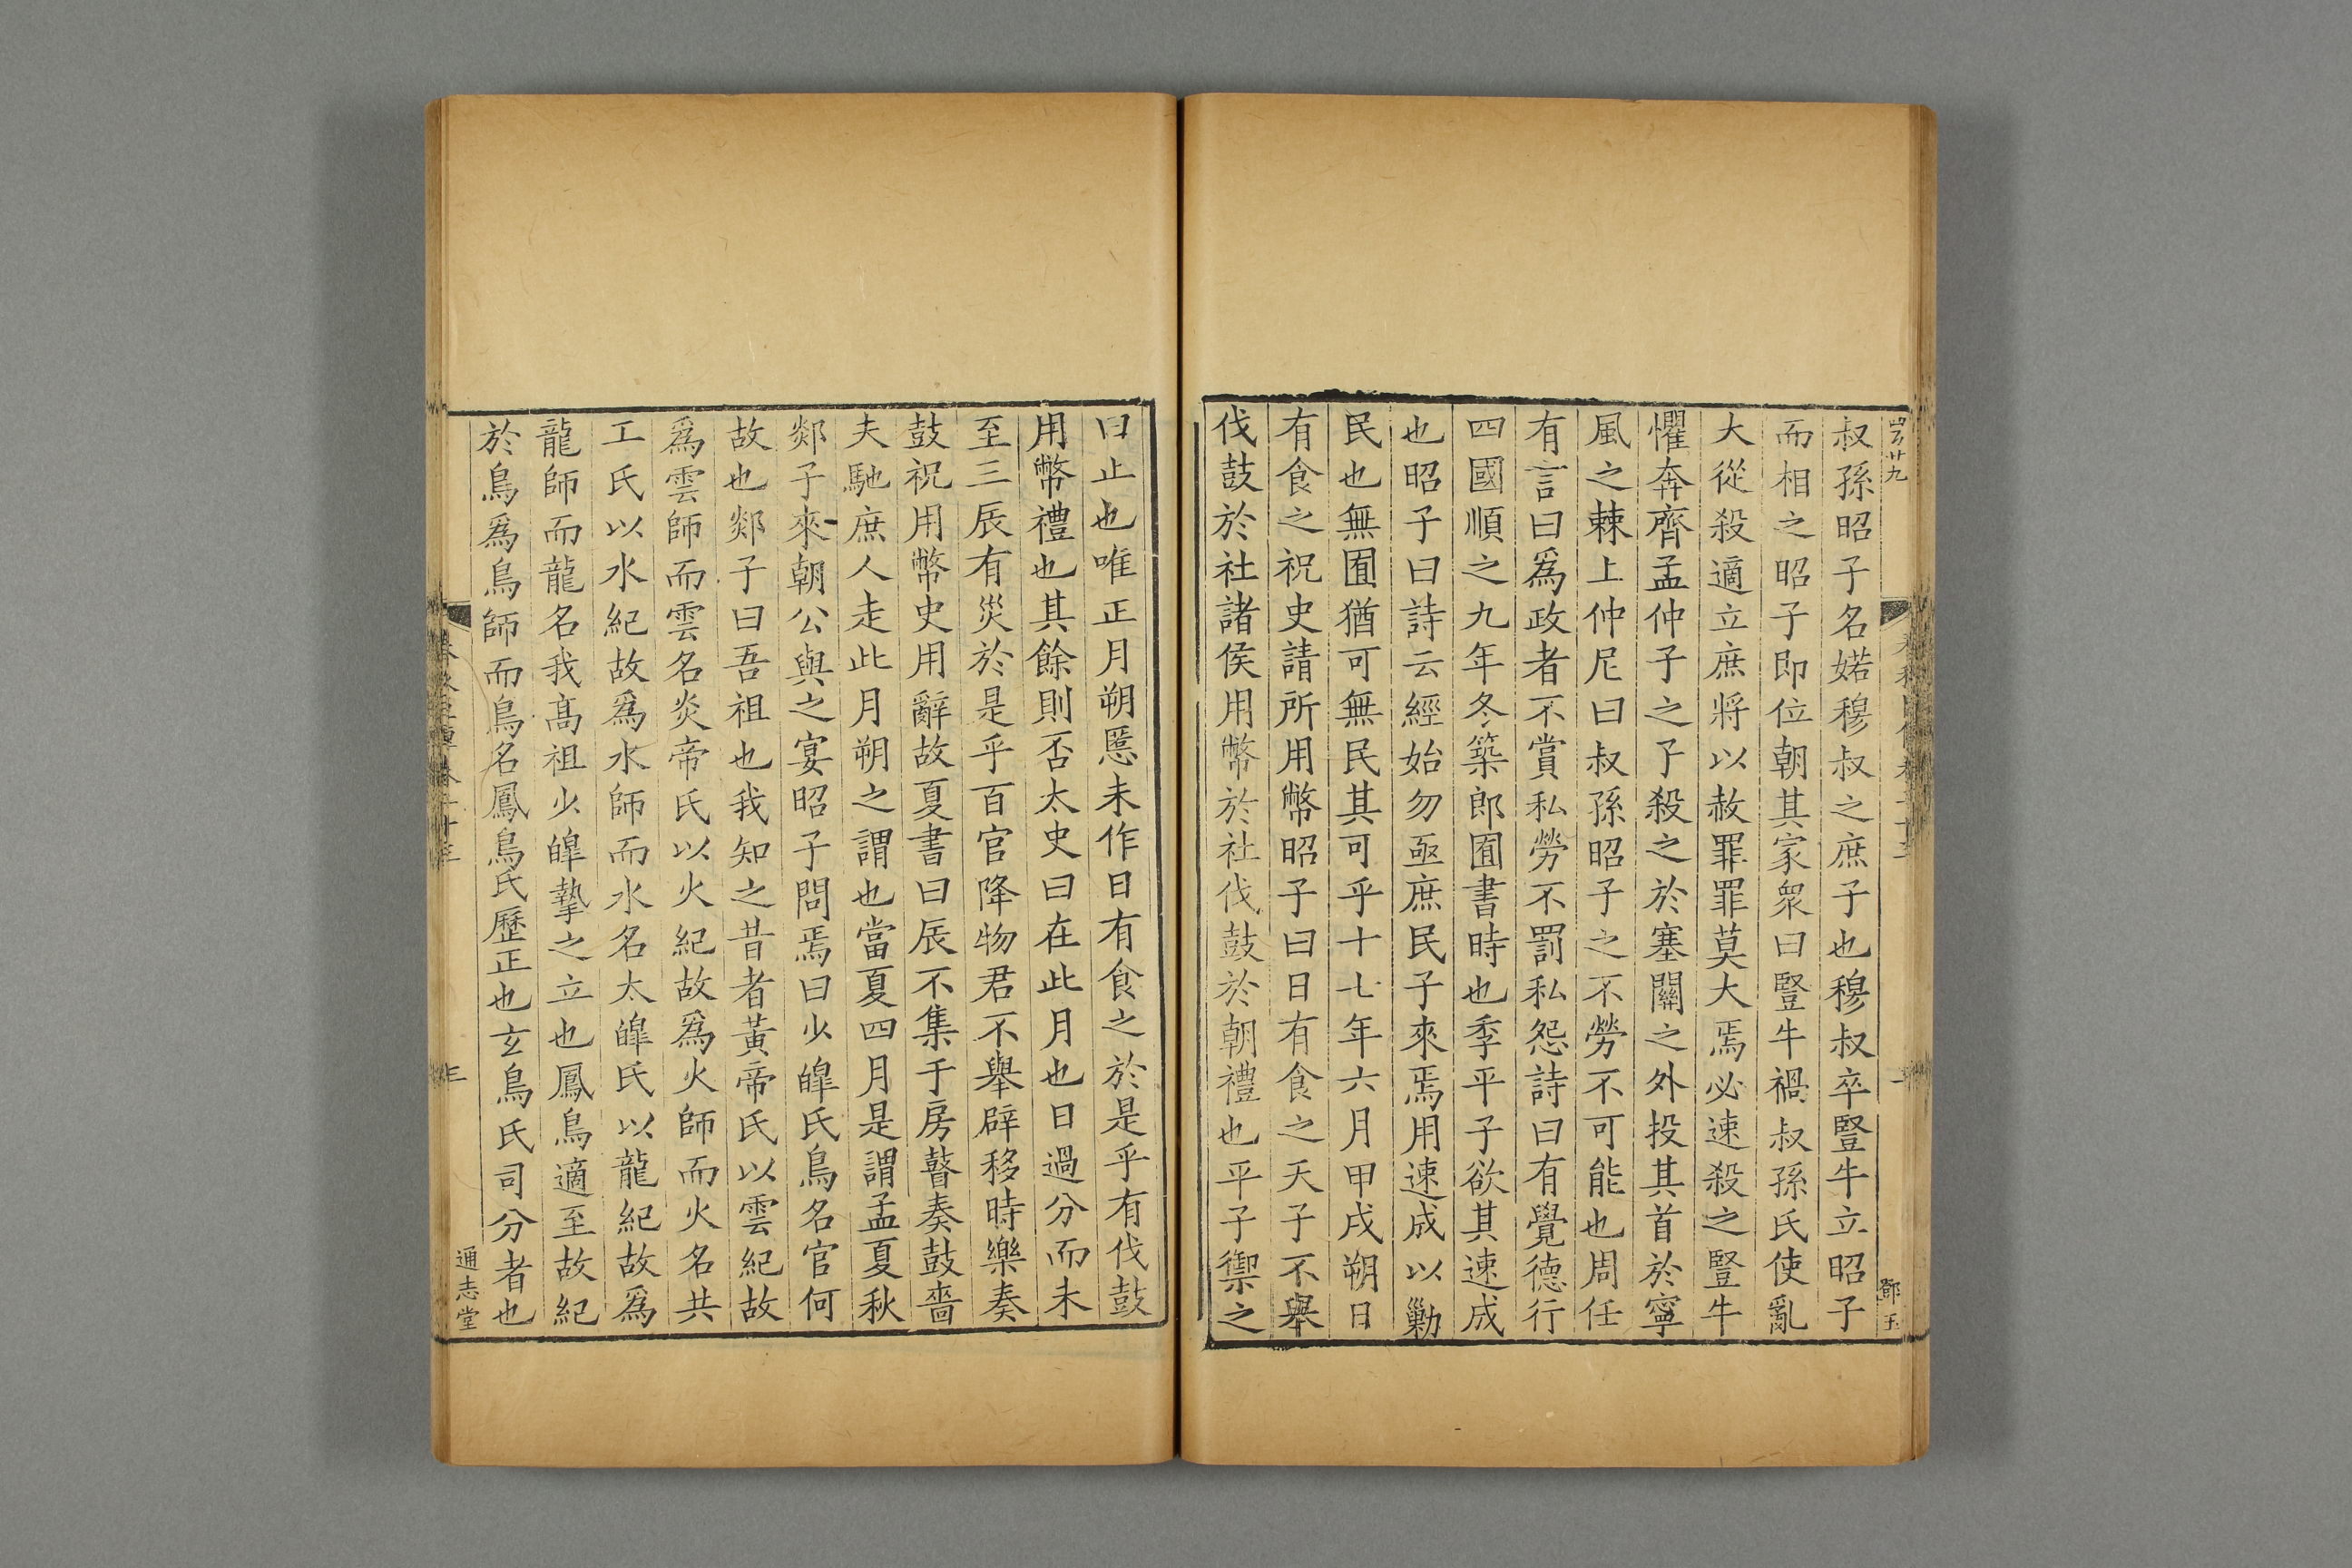 叔孫昭子名婼穆叔之庶子也穆叔卒豎牛立昭子
而相之昭子即位朝其家衆曰豎牛禍叔孫氏使亂
大從殺適立庶將以赦罪罪莫大焉必速殺之豎牛
懼奔齊孟仲子之子殺之於塞關之外投其首於寧
風之棘上仲尼曰叔孫昭子之不勞不可能也周任
有言曰爲政者不賞私勞不罰私怨詩曰有覺德行
四國順之九年冬築郎囿書時也季平子欲其速成
也昭子曰詩云經始勿亟庶民子來焉用速成以勦
民也無囿猶可無民其可乎十七年六月甲戌朔日
有食之祝史請所用幣昭子曰日有食之天子不舉
伐鼓於社諸侯用幣於社伐鼓於朝禮也平子禦之
曰止也唯正月朔慝未作日有食之於是乎有伐鼓
用幣禮也其餘則否太史曰在此月也日過分而未
至三辰有災於是乎百官降物君不舉辟移時樂奏
鼓祝用幣史用辭故夏書曰辰不集于房瞽奏鼓嗇
夫馳庶人走此月朔之謂也當夏四月是謂孟夏秋
郯子來朝公與之宴昭子問焉曰少皥氏鳥名官何
故也郯子曰吾祖也我知之昔者黃帝氏以雲紀故
爲雲師而雲名炎帝氏以火紀故爲火師而火名共
工氏以水紀故爲水師而水名太皥氏以龍紀故爲
龍師而龍名我高祖少皥摯之立也鳳鳥適至故紀
於鳥爲鳥師而鳥名鳳鳥氏歷正也玄鳥氏司分者也
通志堂